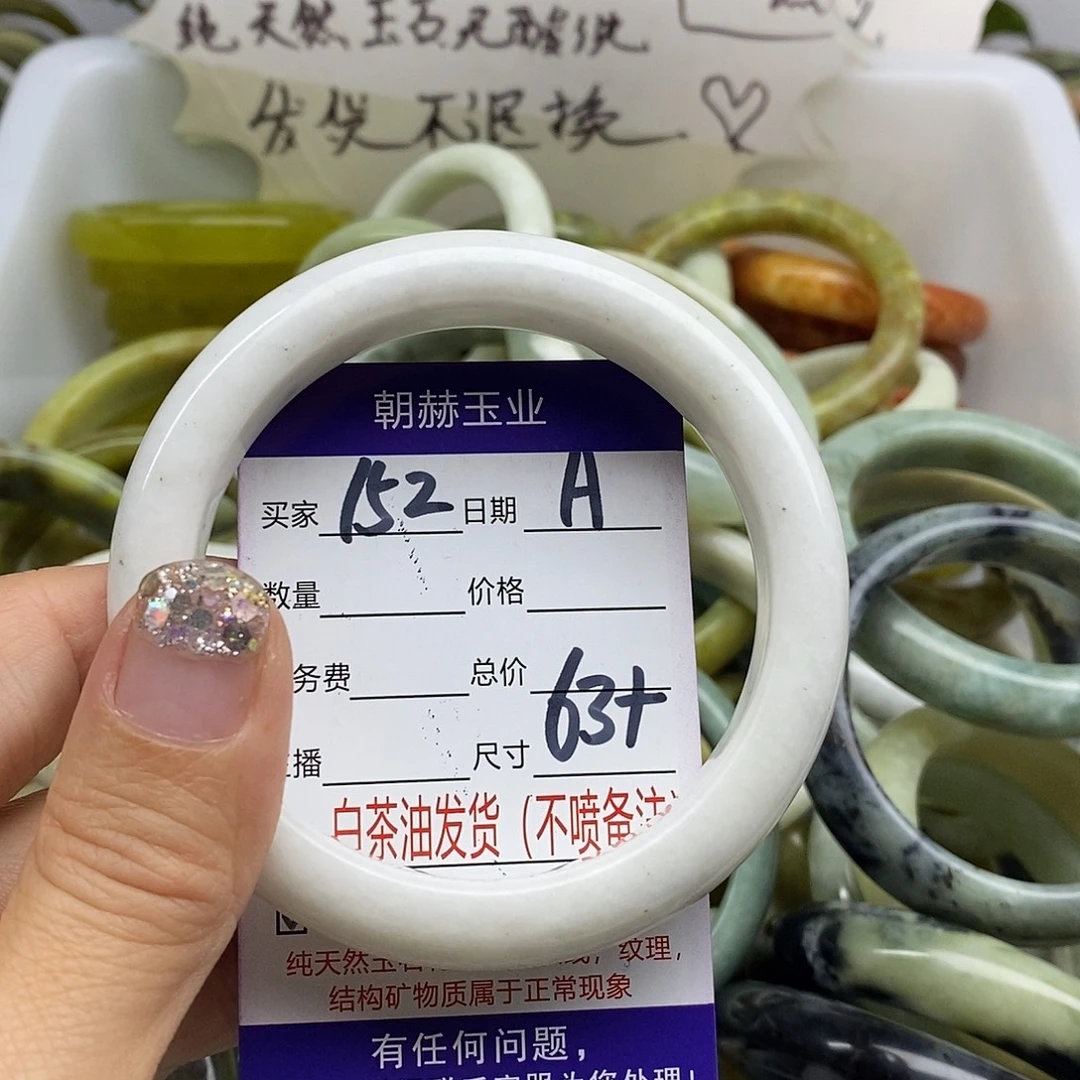 纯天然玉石无酸洗
发货不退换
朝赫玉业
买家 152 日期 A
数量 价格
务费 总价
播 尺寸 63+
白茶油发货（不喷备注
纯天然玉石 纹理，
结构矿物质属于正常现象
有任何问题，